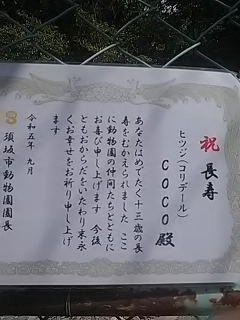 祝 長寿
ヒツジ(コリデール)
COCO殿
あなたはめでたく十三歳の長
寿をむかえられました ここ
に動物園の仲間たちとともに
お喜び申し上げます 今後
ともおからだをいたわり末永
くお幸せをお祈り申し上げ
ます
令和五年 九月
須坂市動物園園長